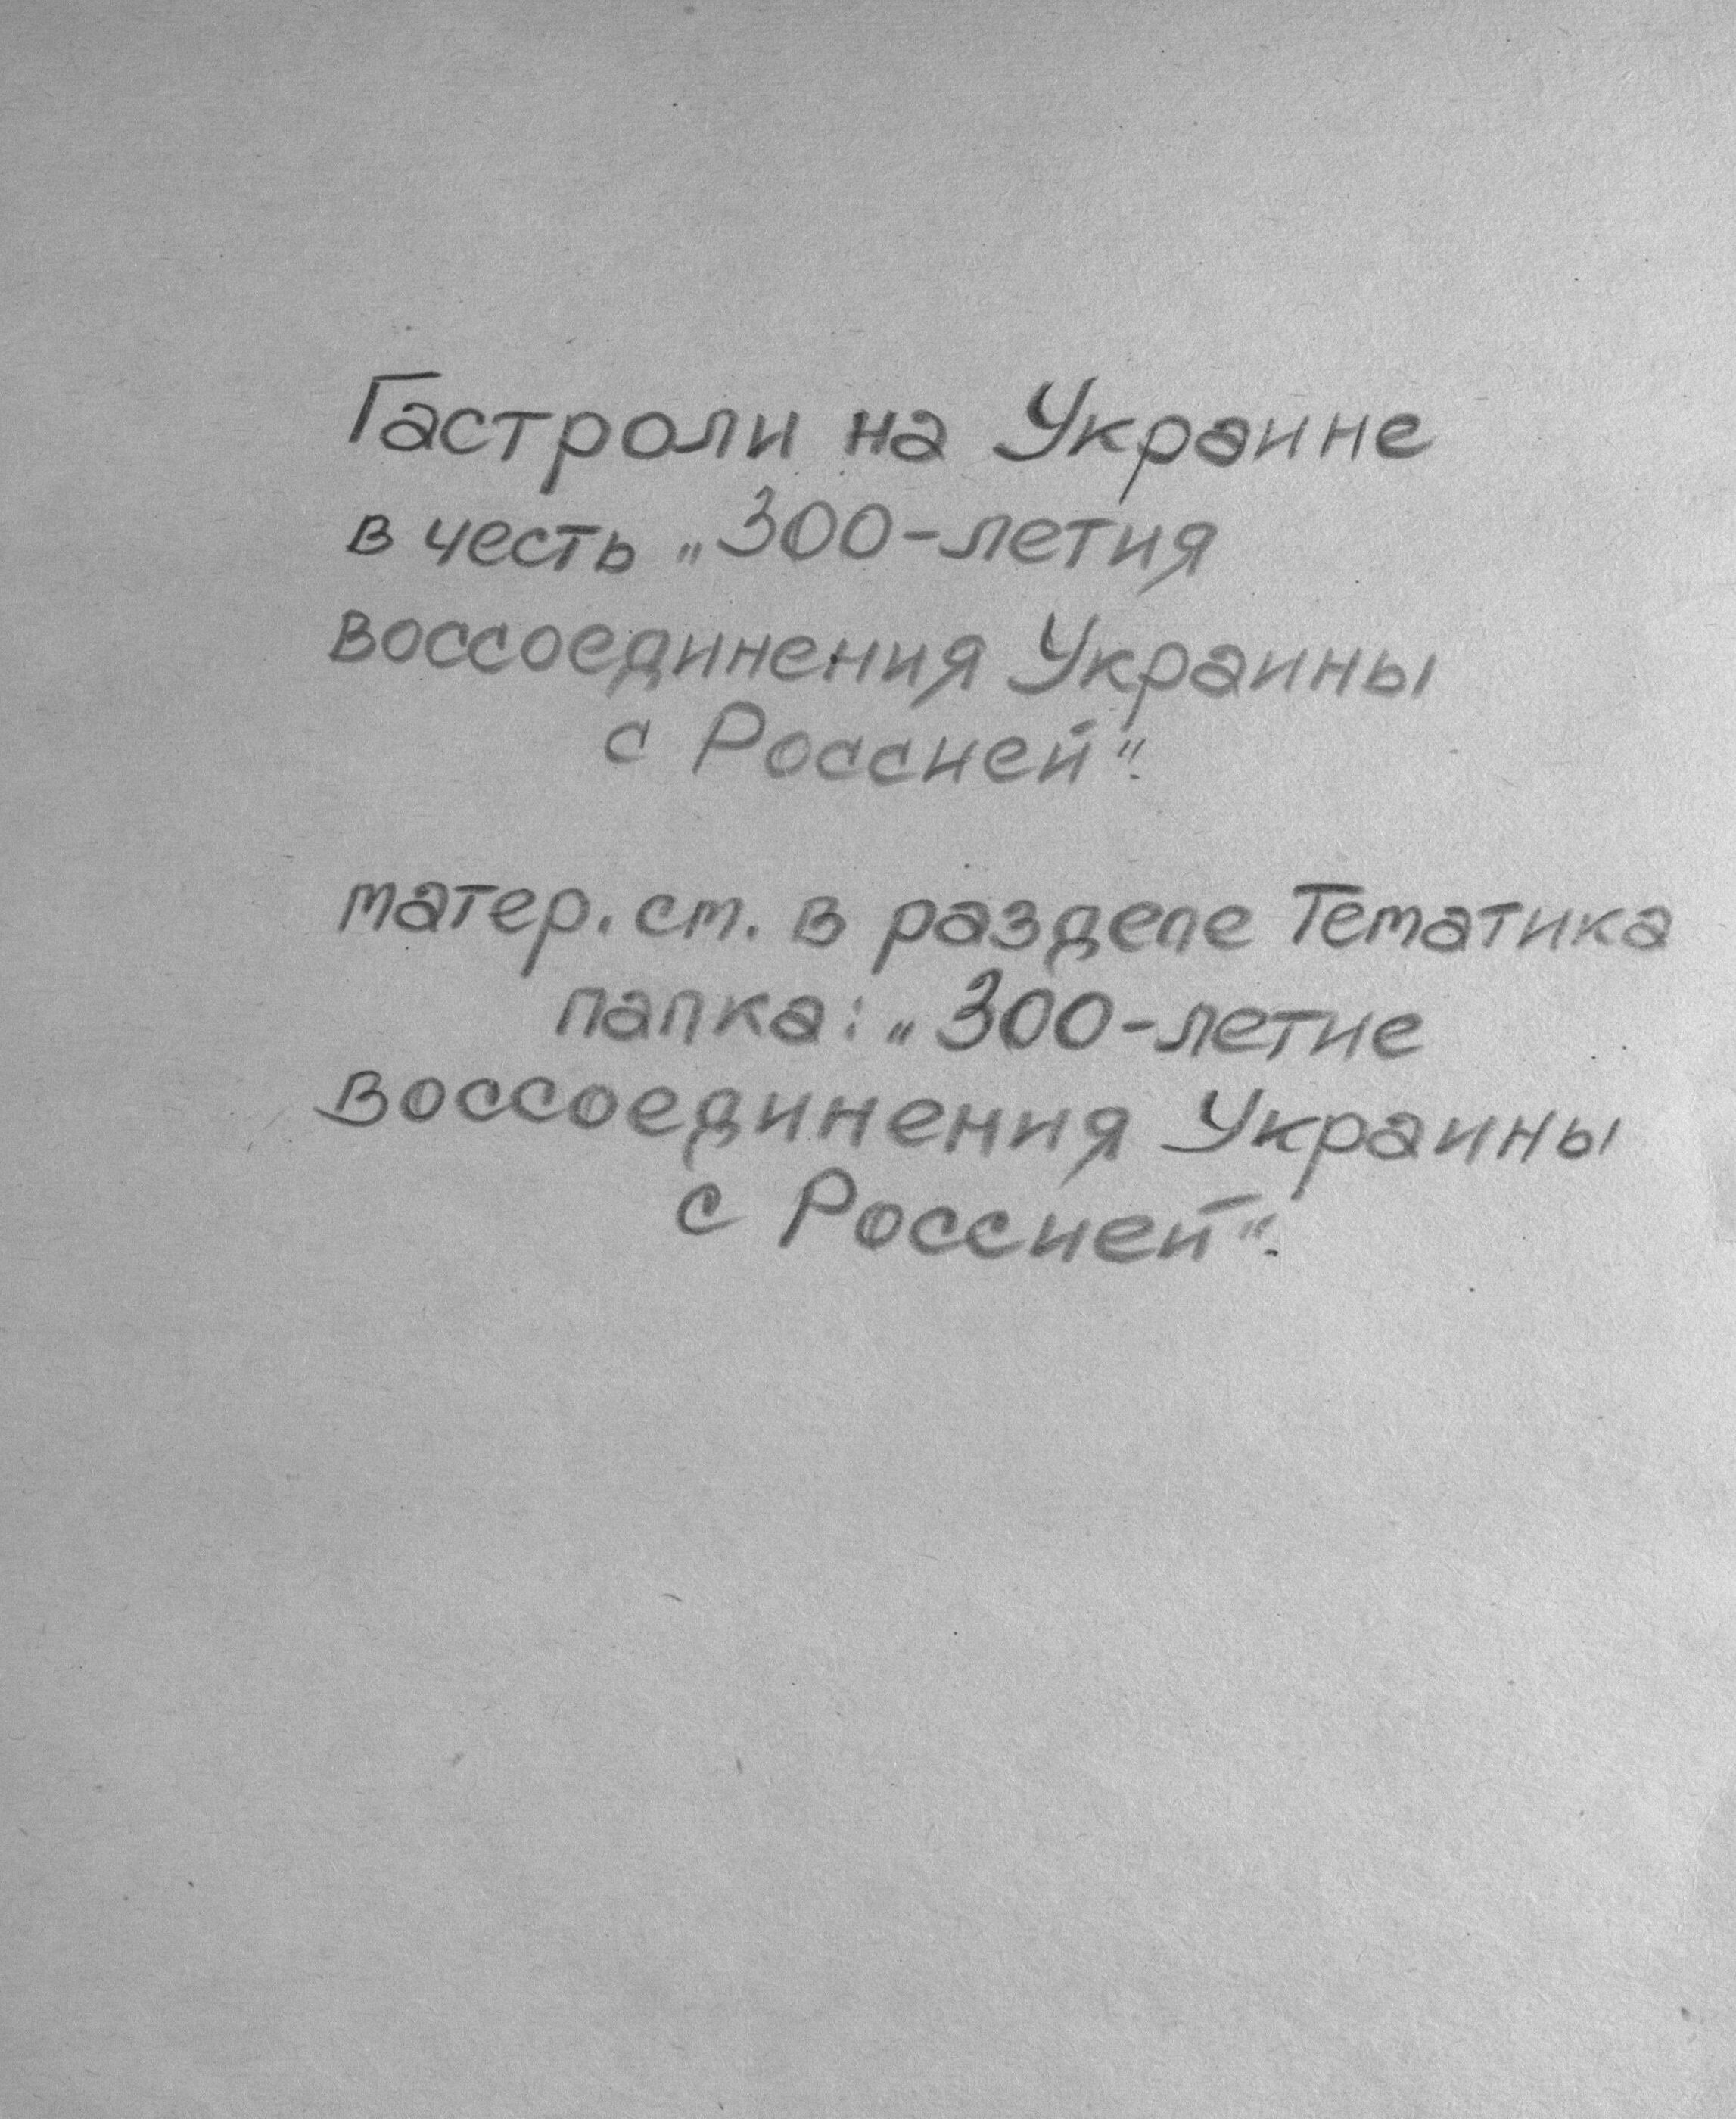 Гастроли на Украине
в честь „300-летия
воссоединения Украины
с Россией“.
матер. ст. в разделе Тематика
папка: „300-летие
воссоединения Украины
с Россией“.